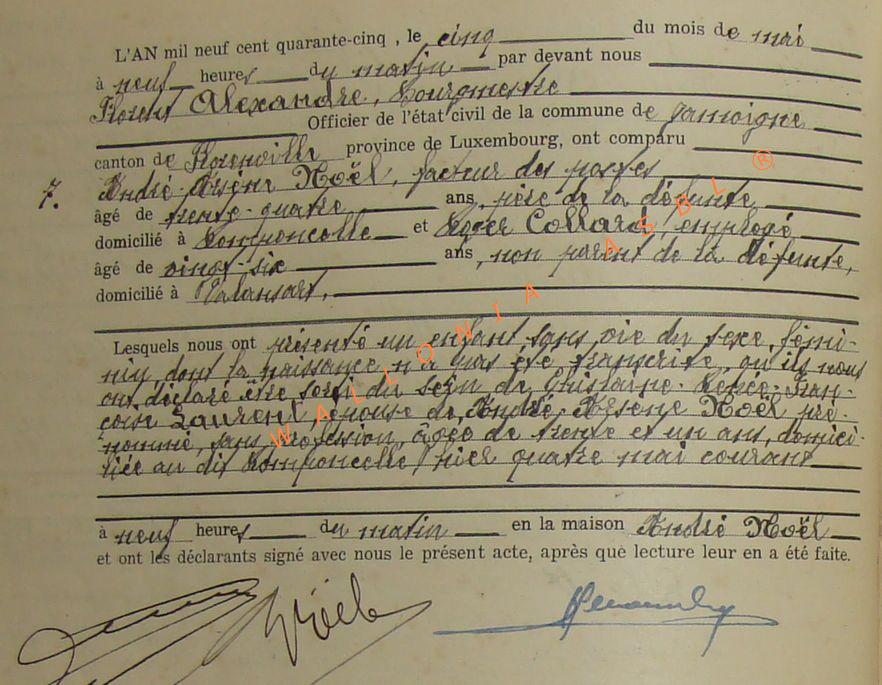 L'AN mil neuf cent quarante-cinq, le cinq du mois de mai
à neuf heures du matin par devant nous
Florent Alexandre, Bourgmestre
Officier de l'état civil de la commune de Jamoigne
canton de Florenville province de Luxembourg, ont comparu
7. André-Arsène Noël, facteur des postes
âgé de trente-quatre ans, père de la défunte,
domicilié à Romponcelle et Roger Collard, employé
âgé de vingt-six ans, non parent de la défunte,
domicilié à Valansart,
Lesquels nous ont présenté un enfant sans vie du sexe fémi-
nin dont la naissance n'a pas été transcrite, qu'ils nous
ont déclaré être sorti du sein de Ghislaine-Renée-Fran-
çoise Laurent épouse de André-Arsène Noël pré-
nommé, sans profession, âgée de trente et un ans, domici-
liée au dit Romponcelle, hier quatre mai courant
à neuf heures du matin en la maison André Noël
et ont les déclarants signé avec nous le présent acte, après que lecture leur en a été faite.
Noël
WALLONIA ASBL ®